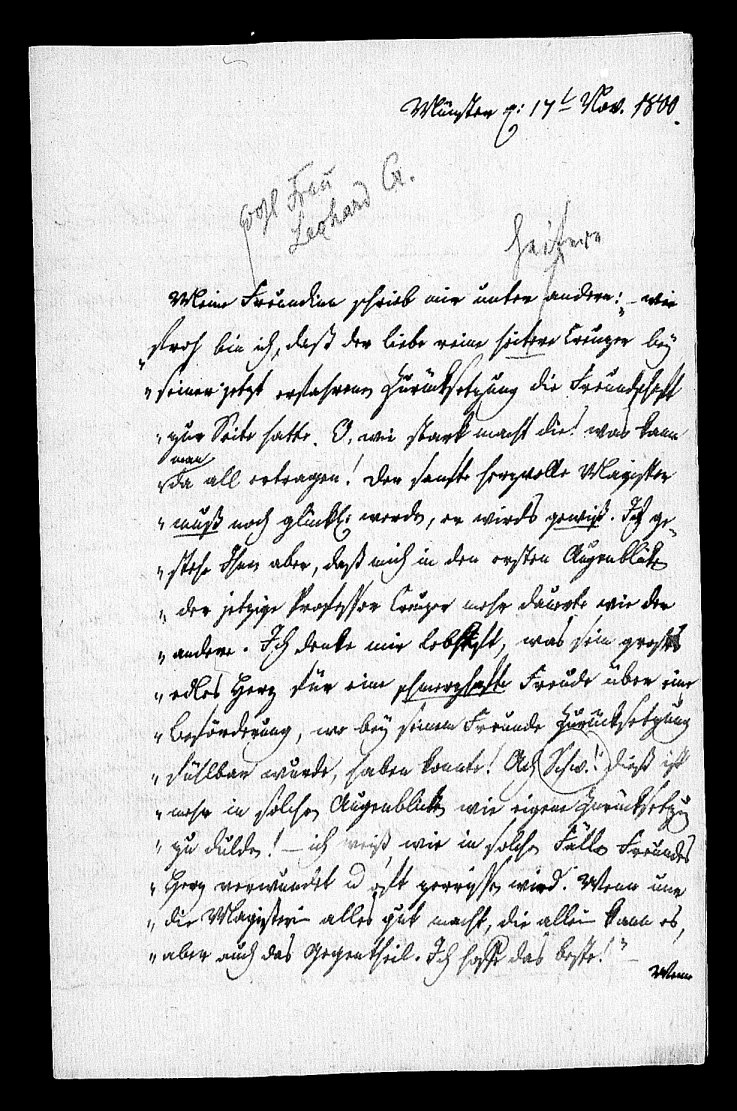 Münster d: 17t Nov. 1800.
Frau
Leonhard Cr.
heitere
Meine Freundinn schrieb mir unter andern: „wie
„froh bin ich, daß der liebe reine heitere Creuzer bey
„seiner jetzt erfahrenen Zurücksetzung die Freundschaft
„zur Seite hatte. O, wie stark macht die! was kann
man
„da all ertragen! Der sanfte herzvolle Magister
„muß noch glückl: werden, er wirds gewiß. Ich ge-
„stehe Ihnen aber, daß mich in den ersten Augenblicken
„der jetzige Professor Creuzer mehr dauerte wie der
„andere. Ich denke mir lebhaft, was sein großes
„edles Herz für eine schmerzhafte Freude über eine
„Beförderung, wo bey seinem Freunde Zurücksetzung
„fühlbar wurde, haben konnte! Ach Schw.! dieß ist
„mehr in solchen Augenblicken wie eigene Zurücksetzung
„zu dulden! – ich weiß wie in solchen Fällen Freundes
„Herz verwundet u oft zerrissen wird. Wenn nur
„die Magisterin alles gut macht, die allein kann es,
„aber auch das Gegentheil. Ich hoffe das beste!" –
Wenn